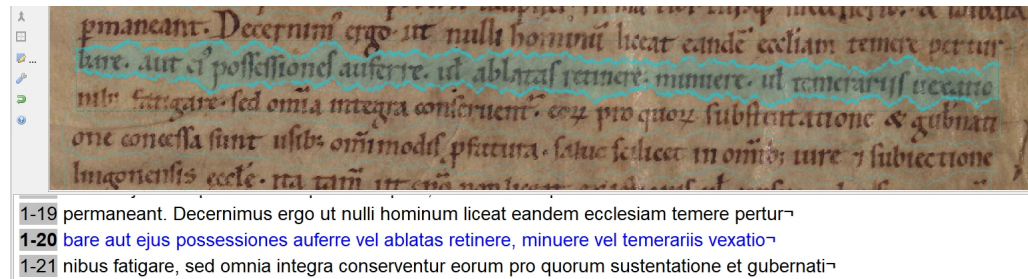 ꝑmaneant. Decernimꝰ ergo. ut nulli hominū liceat eandē eccliam temere pertur
bare. aut ei᷒ possessiones auferre. ul̄ ablatas retinere. minuere. ul̄ temerariis uexatio
nib; fatigare. sed om̄ia integra conseruent᷑. eoꝝ pro quoꝝ sustentatione & gubnati
one concessa sunt usib; om̄imodis ꝓfutura. saluo scilicet in om̄ib; iure ⁊ subiectione
lingonensis eccle.
1-19 permaneant. Decernimus ergo ut nulli hominum liceat eandem ecclesiam temere pertur¬
1-20 bare aut ejus possessiones auferre vel ablatas retinere, minuere vel temerariis vexatio¬
1-21 nibus fatigare, sed omnia integra conserventur eorum pro quorum sustentatione et gubernati¬